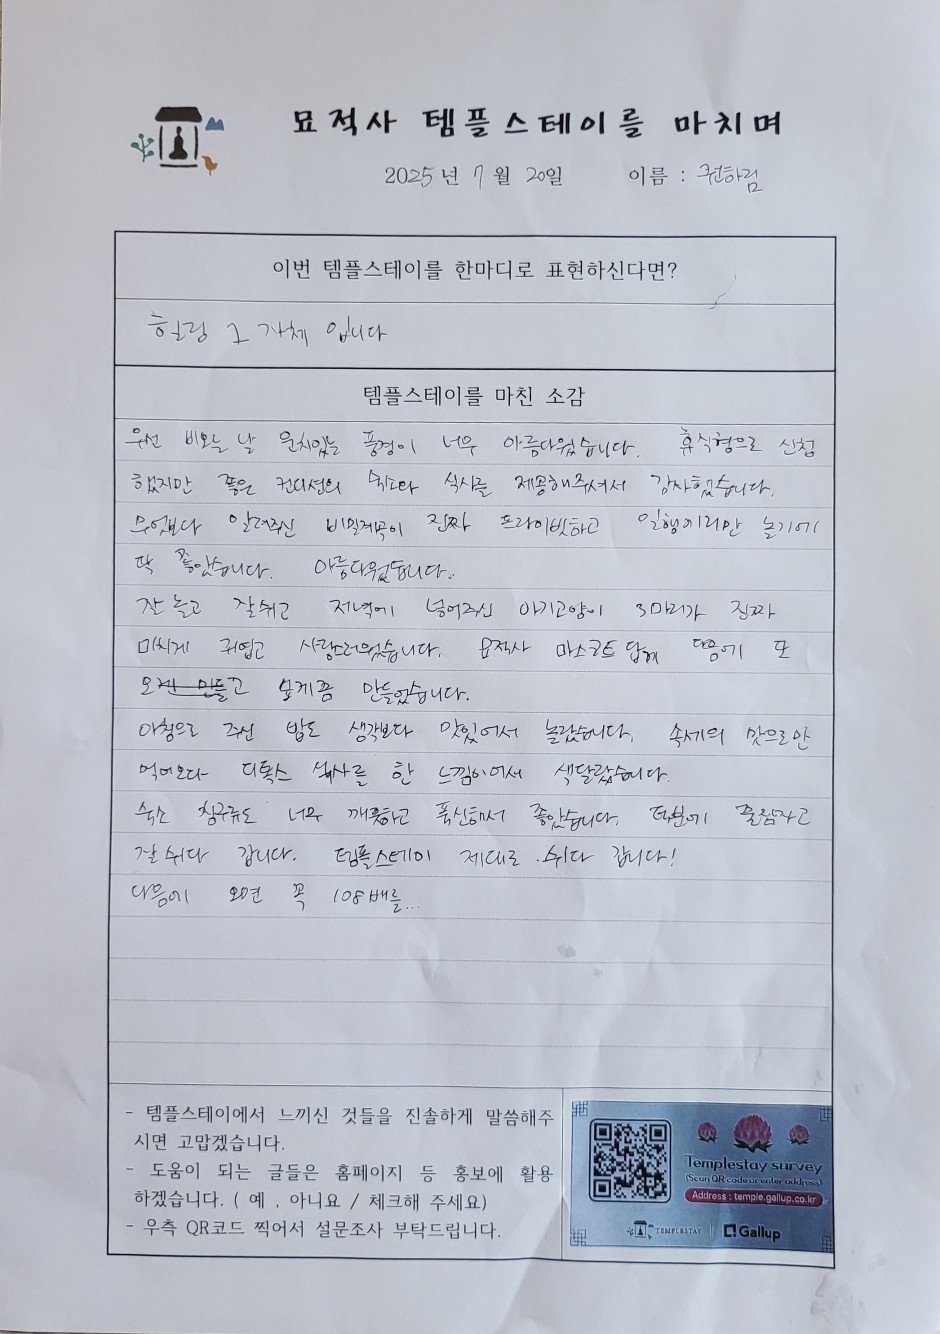 묘적사 템플스테이를 마치며
2025년 7월 20일 이름 : 권하림
이번 템플스테이를 한마디로 표현하신다면?
힐링 그 자체 입니다
템플스테이를 마친 소감
우선 비오는 날 운치있는 풍경이 너무 아름다웠습니다. 휴식형으로 신청
했지만 좋은 컨디션의 숙소와 식사를 제공해주셔서 감사했습니다.
무엇보다 알려주신 비밀계곡이 진짜 프라이빗하고 일행끼리만 놀기에
딱 좋았습니다. 아름다웠습니다..
잘 놀고 잘쉬고 저녁에 넣어주신 아기고양이 3마리가 진짜
미치게 귀엽고 사랑스러웠습니다. 묘적사 마스코트 답게 다음에 또
오게끔 만들었습니다.
아침으로 주신 밥도 생각보다 맛있어서 놀랐습니다. 속세의 맛으로만
먹어오다 디톡스 식사를 한 느낌이어서 색달랐습니다.
숙소 침구류도 너무 깨끗하고 폭신해서 좋았습니다. 덕분에 꿀잠자고
잘 쉬다 갑니다. 템플스테이 제대로 쉬다 갑니다!
다음에 오면 꼭 108배를...
- 템플스테이에서 느끼신 것들을 진솔하게 말씀해주
시면 고맙겠습니다.
- 도움이 되는 글들은 홈페이지 등 홍보에 활용
하겠습니다. ( 예 , 아니요 / 체크해 주세요)
- 우측 QR코드 찍어서 설문조사 부탁드립니다.
Templestay survey
(Scan QR code or enter address)
Address : temple.gallup.co.kr
TEMPLESTAY Gallup